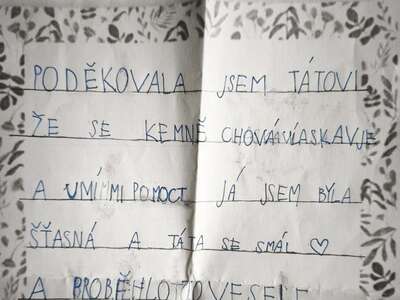 PODĚKOVALA JSEM TÁTOVI
ŽE SE KEMNĚ CHOVÁ A LASKAVJE
A UMÍ MI POMOCT JÁ JSEM BYLA
ŠŤASNÁ A TÁTA SE SMÁL ♡
A PROBĚHLO TO VESELE